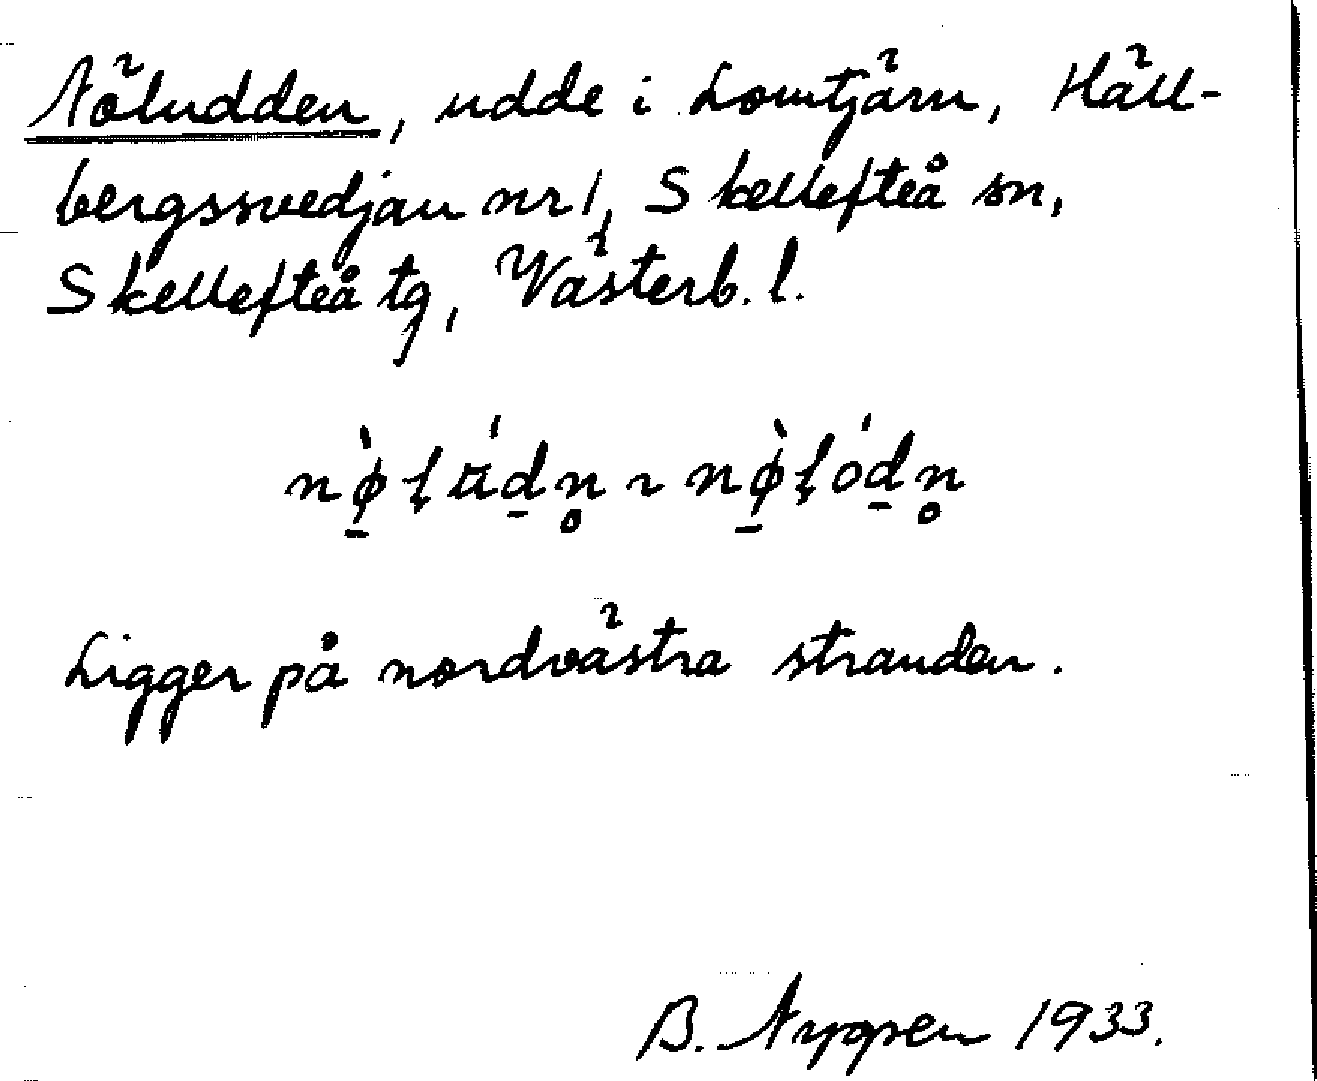 Nöludden, udde i Lomtjärn, Häll-
bergssvedjan nr 1, Skellefteå sn,
Skellefteå tg, Västerb. l.
nø̠̀ļú̈d̠n̥ ~ nø̠̀ļód̠n̥
Ligger på nordvästra stranden.
B. Nygren 1933.